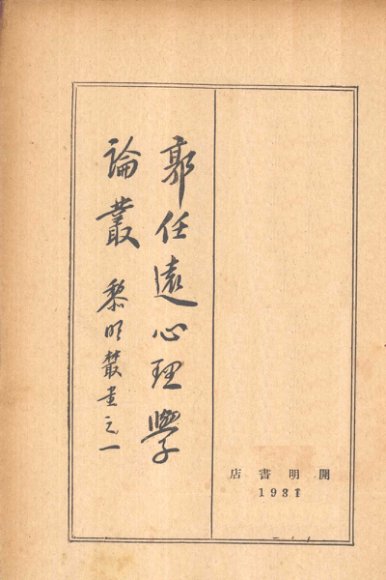 郭任遠心理學
論叢
黎明叢書之一
開明書店
1931